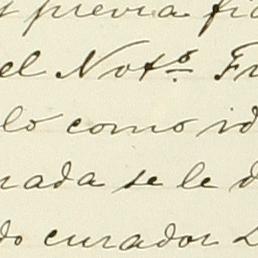 y previa fi
el Not.º F
lo como id
rada se le d
do curador